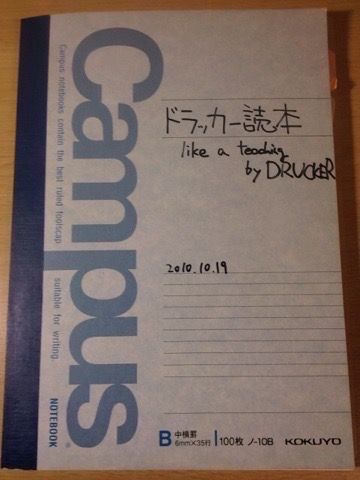 Campus
Campus notebooks contain the best ruled foolscap suitable for writing.
NOTEBOOK
ドラッカー読本
like a teaching
by DRUCKER
2010.10.19
B 中横罫 6mm×35行 100枚 ノ-10B KOKUYO